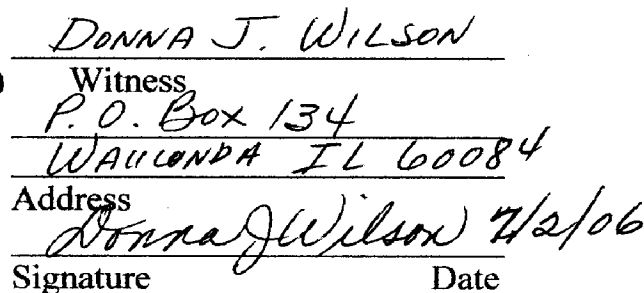 DONNA J. WILSON
Witness
P.O. Box 134
WAUCONDA IL 60084
Address
Donna J Wilson 7/2/06
Signature Date